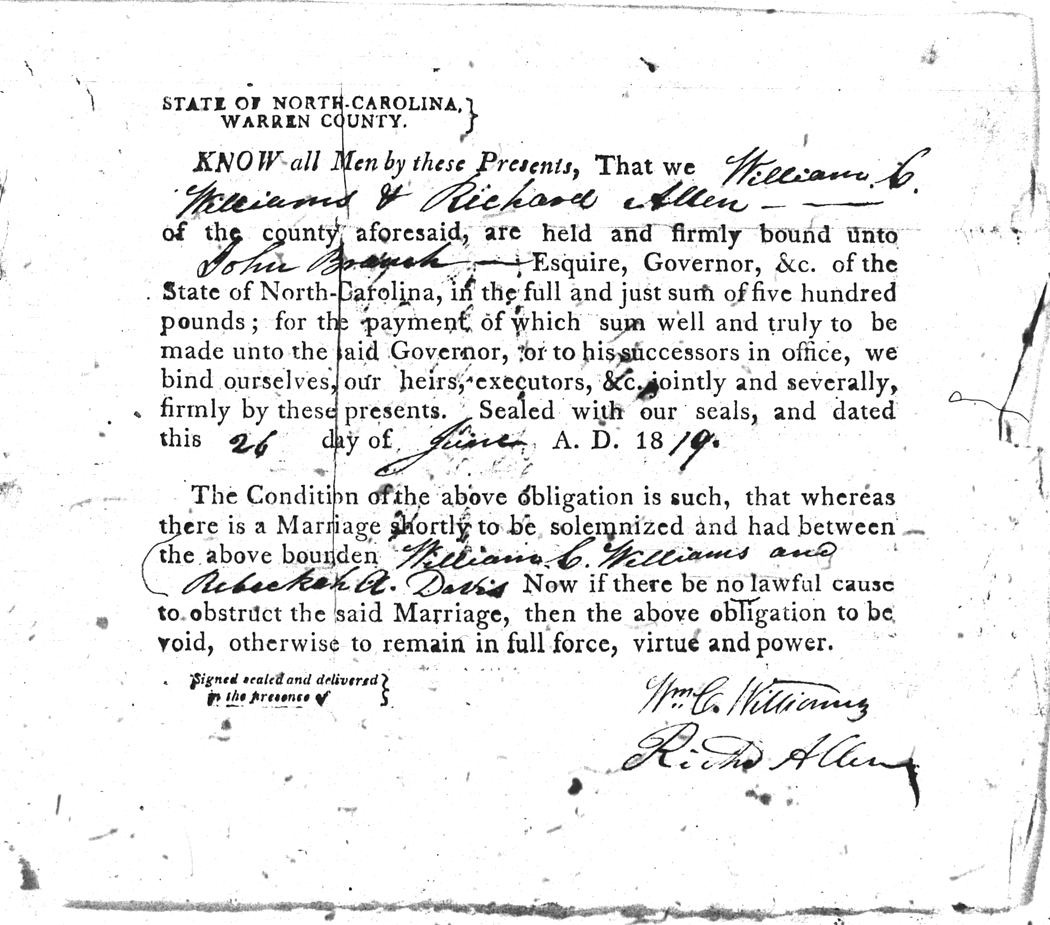 STATE OF NORTH-CAROLINA,
WARREN COUNTY.
KNOW all Men by these Presents, That we William C.
Williams & Richard Allen - —
of the county aforesaid, are held and firmly bound unto
John Branch — Esquire, Governor, &c. of the
State of North-Carolina, in the full and just sum of five hundred
pounds; for the payment of which sum well and truly to be
made unto the said Governor, or to his successors in office, we
bind ourselves, our heirs, executors, &c. jointly and severally,
firmly by these presents. Sealed with our seals, and dated
this 26 day of June A. D. 1819.
The Condition of the above obligation is such, that whereas
there is a Marriage shortly to be solemnized and had between
the above bounden William C. Williams and
Rebeckah A. Davis Now if there be no lawful cause
to obstruct the said Marriage, then the above obligation to be
void, otherwise to remain in full force, virtue and power.
Signed sealed and delivered
in the presence of
Wm. C. Williams
Richd Allen